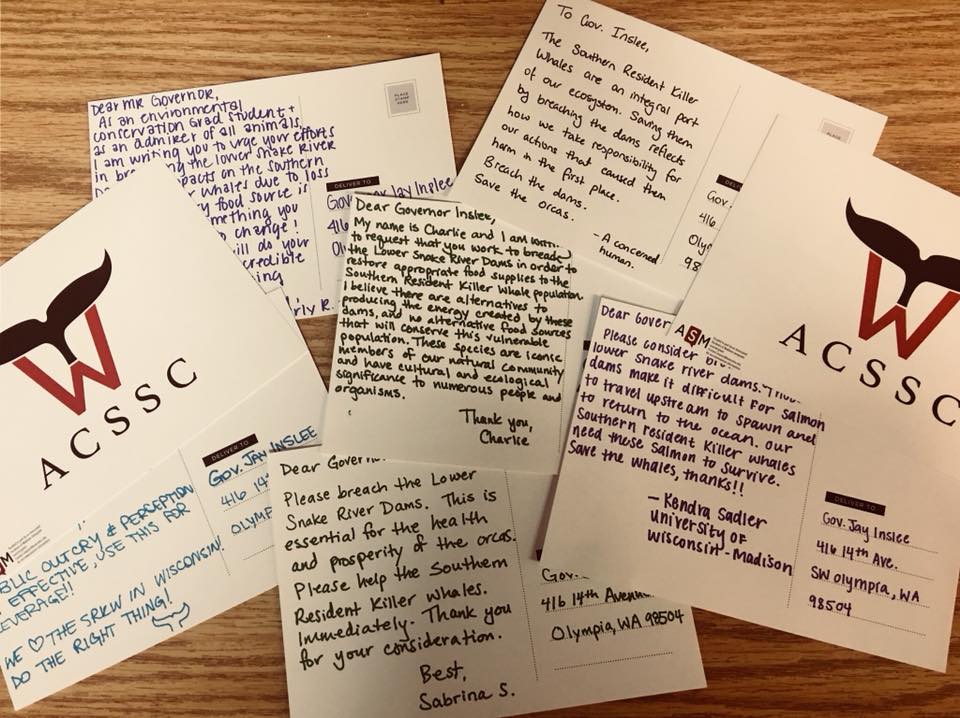 Dear Mr Governor,
As an environmental
conservation grad student +
as an admirer of all animals,
I am writing you to urge your efforts
in breaching the lower Snake River
impacts on the Southern
whales due to loss
food source is
something you
to change!
will do your
credible
DELIVER TO
Governor Jay Inslee
416
PLACE
STAMP
HERE
To Gov. Inslee,
The Southern Resident Killer
Whales are an integral part
of our ecosystem. Saving them
by breaching the dams reflects
how we take responsibility for
our actions that caused them
harm in the first place.
Breach the dams.
Save the orcas.
- A concerned
human.
Gov.
416
Oly
98
Dear Governor Inslee,
My name is Charlie and I am
to request that you work to breach
the Lower Snake River Dams in order to
restore appropriate food supplies to the
Southern Resident Killer Whale population.
I believe there are alternatives to
producing the energy created by these
dams, and no alternative food sources
that will conserve this vulnerable
population. These species are iconic
members of our natural community
and have cultural and ecological
significance to numerous people and
organisms.
Thank you,
Charlie
W
ACSSC
W
ACSSC
ASM
Dear Gover
Please consider
lower snake river dams.
dams make it difficult for salmon
to travel upstream to spawn and
to return to the ocean. Our
Southern resident killer whales
need these salmon to survive.
Save the whales, thanks!!
- Kendra Sadler
University of
Wisconsin-Madison
DELIVER TO
Gov. Jay Inslee
416 14th Ave.
SW Olympia, WA
98504
SM
OUTCRY & PERCEPTION
EFFECTIVE, USE THIS FOR
WE ♡ THE SRKW IN WISCONSIN!
DO THE RIGHT THING!
DELIVER TO
GOV. JAY INSLEE
416 14
OLYMP
Dear Govern
Please breach the Lower
Snake River Dams. This is
essential for the health
and prosperity of the orcas.
Please help the Southern
Resident Killer Whales.
Immediately. Thank you
for your consideration.
Best,
Sabrina S.
Gov.
416 14th Avenu
Olympia, WA 98504